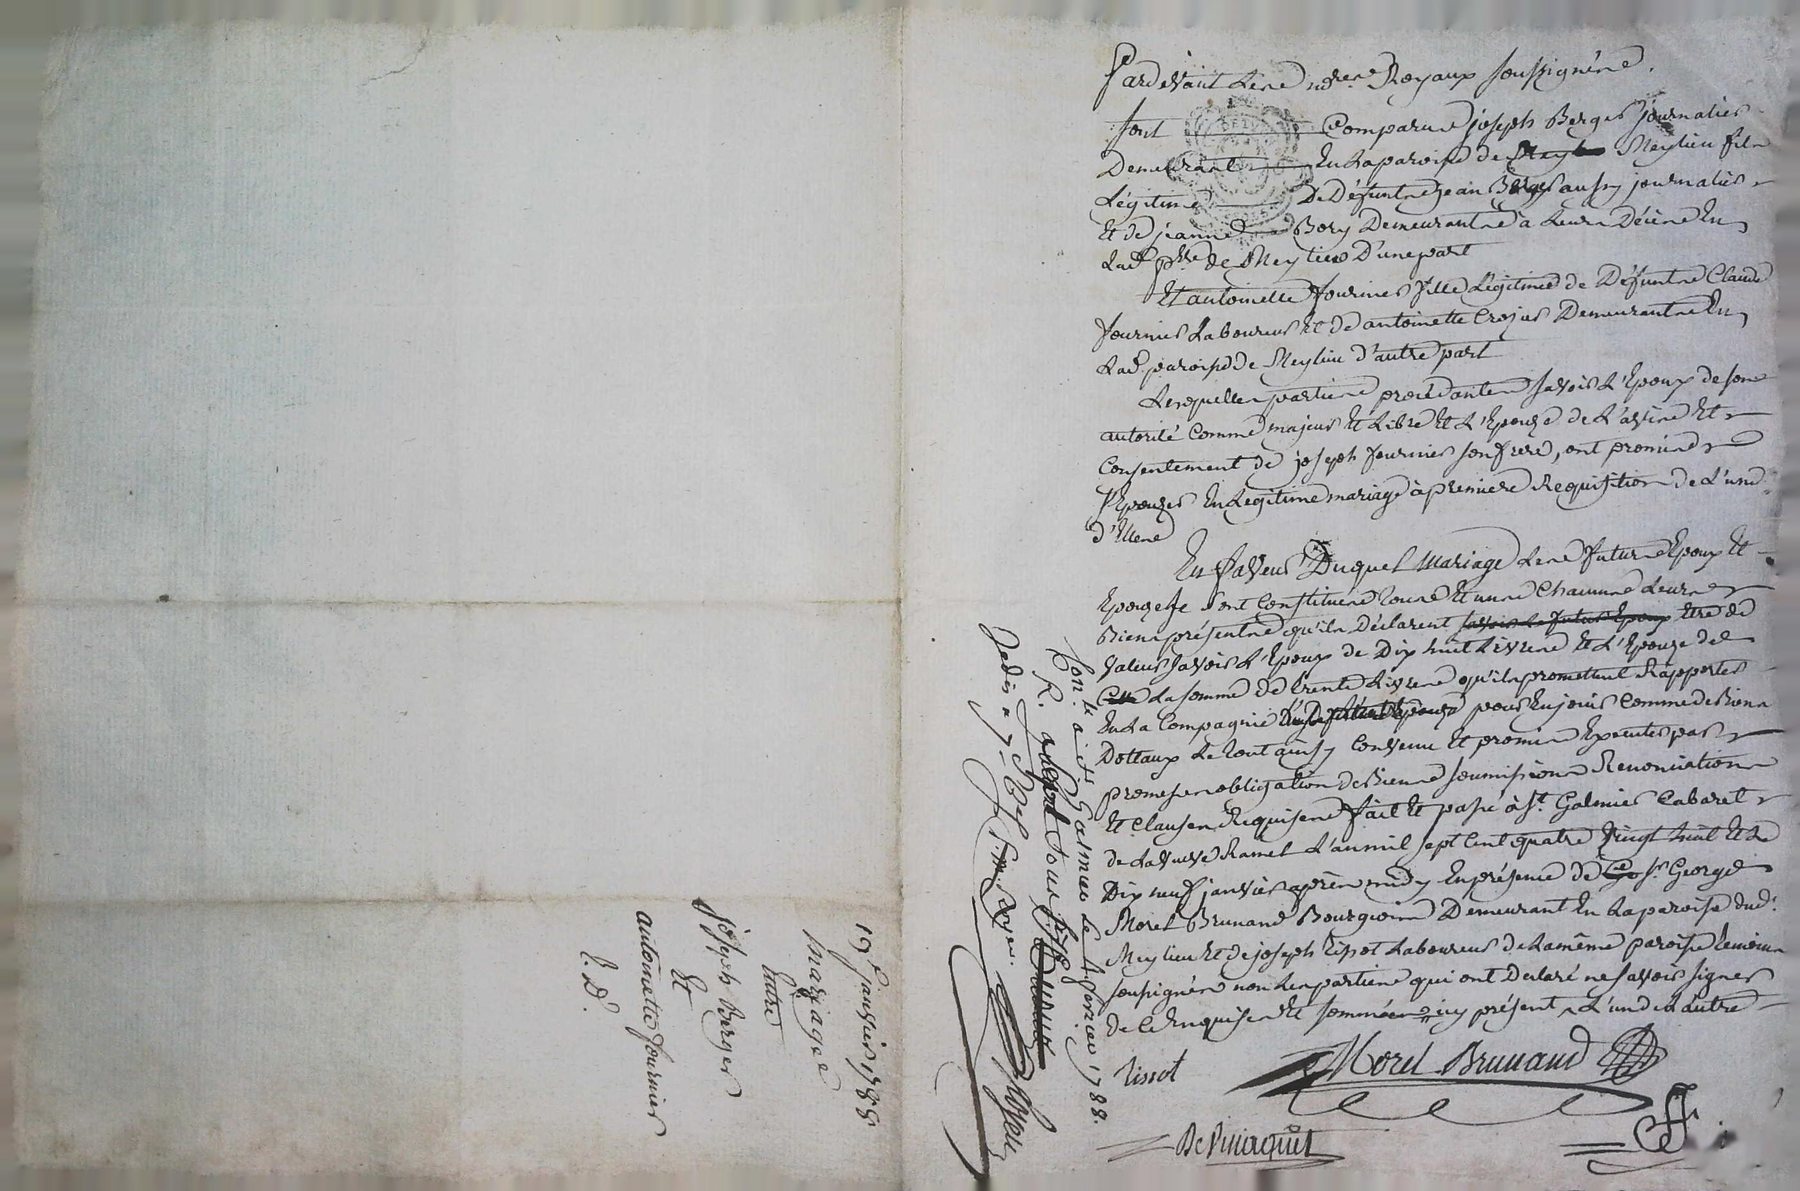 Pardevant Les no.res Royaux soussignés.
sont Comparus joseph Berger journalier
Demeurant En La paroisse de Meylieu fils
Légitime De Défunts jean Berger aussy journalier
Et de jeanne Bory Demeurants à Leurs Décès En
Lad. p.sse de Meylieu D'une part
Et antoinette fournier fille Légitime de Défunts Claude
fournier Laboureur Et de antoinette Crozier Demeurante En
Lad. paroisse de Meylieu d'autre part
Lesquelles parties procédantes savoir L'Epoux de son
autorité Comme majeur Et Libre Et L'Epouze de L'avis Et
Consentement de joseph fournier son frere, ont promis
s'Epouzer En Légitime mariage à premiere Requisition de L'un
d'Eux
En faveur Duquel mariage Les futurs Epoux Et
Epouze se sont Constitués tous Et uns Chacuns Leurs
Biens présents qu'ils Déclarent savoir le futur Epoux Etre de
valeur savoir L'Epoux de Dix huit Livres Et L'Epouze de
La somme de trente Livres qu'ils promettent Rapporter
En La Compagnie pour En jouir Comme de Biens
Dottaux Le tout ainsy Convenu Et promis Executer par
promesses obligation de Biens soumissions Renonciations
Et Clauses Requises fait Et passé à S.t Galmier Cabaret
de La veuve Ramel L'an mil sept Cent quatre vingt huit Et Le
Dix neuf janvier après midy En présence de S.r George
Morel Brunand Bourgeois Demeurant En La paroisse dud.
Meylieu Et de joseph Tissot Laboureur de La même paroisse temoins
soussignés non Les parties qui ont Declaré ne savoir signer
de Ce Enquises Et sommées icy présent L'un Et L'autre
Tissot Morel Brunand
Con.lé à S.t Galmier Le 1 fevrier 1788.
R.
19.e janvier 1788
Mariage
Entre
Joseph Berger
Et
antoinette fournier
E. D.